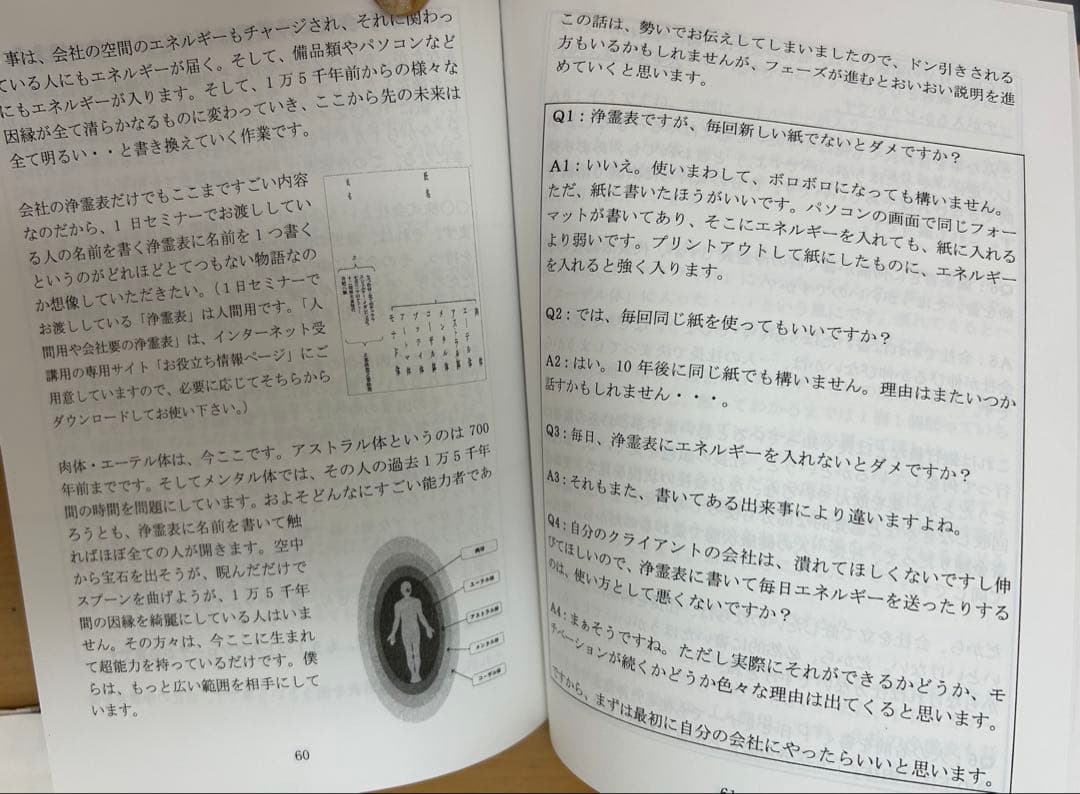 事は、会社の空間のエネルギーもチャージされ、それに関わっ
ている人にもエネルギーが届く。そして、備品類やパソコンなど
にもエネルギーが入ります。そして、1万5千年前からの様々な
因縁が全て清らかなるものに変わっていき、ここから先の未来は
全て明るい・・と書き換えていく作業です。
会社の浄霊表だけでもここまですごい内容
なのだから、1日セミナーでお渡ししてい
る人の名前を書く浄霊表に名前を1つ書く
というのがどれほどとてつもない物語なの
か想像していただきたい。(1日セミナーで
お渡ししている「浄霊表」は人間用です。「人
間用や会社要の浄霊表」は、インターネット受
講用の専用サイト「お役立ち情報ページ」にご
用意していますので、必要に応じてそちらから
ダウンロードしてお使い下さい。)
肉体・エーテル体は、今ここです。アストラル体というのは700
年前までです。そしてメンタル体では、その人の過去1万5千年
間の時間を問題にしています。およそどんなにすごい能力者であ
ろうとも、浄霊表に名前を書いて触
ればほぼ全ての人が開きます。空中
から宝石を出そうが、睨んだだけで
スプーンを曲げようが、1万5千年
間の因縁を綺麗にしている人はいま
せん。その方々は、今ここに生まれ
て超能力を持っているだけです。僕
らは、もっと広い範囲を相手にして
います。
肉体
エーテル体
アストラル体
メンタル体
コーザル体
60
この話は、勢いでお伝えしてしまいましたので、ドン引きされる
方もいるかもしれませんが、フェーズが進むとおいおい説明を進
めていくと思います。
Q1:浄霊表ですが、毎回新しい紙でないとダメですか?
A1:いいえ。使いまわして、ボロボロになっても構いません。
ただ、紙に書いたほうがいいです。パソコンの画面で同じフォー
マットが書いてあり、そこにエネルギーを入れても、紙に入れる
より弱いです。プリントアウトして紙にしたものに、エネルギー
を入れると強く入ります。
Q2:では、毎回同じ紙を使ってもいいですか?
A2:はい。10年後に同じ紙でも構いません。理由はまたいつか
話すかもしれません・・・。
Q3:毎日、浄霊表にエネルギーを入れないとダメですか?
A3:それもまた、書いてある出来事により違いますよね。
Q4:自分のクライアントの会社は、潰れてほしくないですし伸
びてほしいので、浄霊表に書いて毎日エネルギーを送ったりする
のは、使い方として悪くないですか?
A4:まぁそうですね。ただし実際にそれができるかどうか、モ
チベーションが続くかどうか色々な理由は出てくると思います。
ですから、まずは最初に自分の会社にやったらいいと思います。